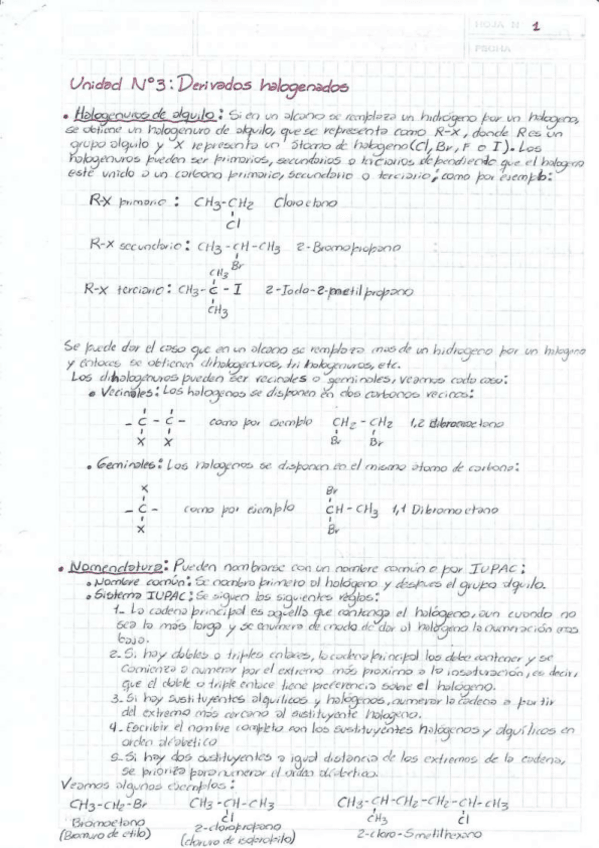 HOJA N° 1
FECHA
Unidad N°3: Derivados halogenados
• Halogenuros de alquilo: Si en un alcano se remplaza un hidrógeno por un halógeno,
se obtiene un halogenuro de alquilo, que se representa como R-X, donde R es un
grupo alquilo y X representa un átomo de halogeno (Cl, Br, F o I). Los
halogenuros pueden ser primarios, secundarios o terciarios dependiendo que el halogeno
este unido a un carbono primario, secundario o terciario, como por ejemplo:
R-X primario: CH3-CH2 Cloroetano
Cl
R-X secundario: CH3-CH-CH3 2-Bromopropano
Br
CH3
R-X terciario: CH3-C-I 2-Iodo-2-metilpropano
CH3
Se puede dar el caso que en un alcano se remplaza mas de un hidrogeno por un halogeno
y entonces se obtienen dihalogenuros, tri halogenuros, etc.
Los dihalogenuros pueden ser vecinales o geminales, veamos cada caso:
• Vecinales: Los halogenos se disponen en dos carbonos vecinos:
-C-C- como por ejemplo CH2-CH2 1,2 dibromoetano
X X Br Br
• Geminales: Los halogenos se disponen en el mismo átomo de carbono:
X Br
-C- como por ejemplo CH-CH3 1,1 Dibromoetano
X Br
• Nomenclatura: Pueden nombrarse con un nombre común o por IUPAC:
• Nombre común: Se nombra primero al halógeno y despues el grupo alquilo.
• Sistema IUPAC: Se siguen las siguientes reglas:
1- La cadena principal es aquella que contenga el halógeno, aun cuando no
sea la más larga y se enumera de modo de dar al halógeno la numeración mas
baja.
2- Si hay dobles o triples enlaces, la cadena principal los debe contener y se
comienza a numerar por el extremo más proximo a la insaturación, es decir,
que el doble o triple enlace tiene preferencia sobre el halógeno.
3- Si hay sustituyentes alquilicos y halógenos, numerar la cadena a partir
del extremo más cercano al sustituyente halogeno.
4- Escribir el nombre completo con los sustituyentes halógenos y alquilicos en
orden alfabético
5- Si hay dos sustituyentes a igual distancia de los extremos de la cadena,
se prioriza para numerar el orden alfabetico.
Veamos algunos ejemplos:
CH3-CH2-Br CH3-CH-CH3 CH3-CH-CH2-CH2-CH-CH3
Cl CH3 Cl
Bromoetano 2-cloropropano 2-cloro-5metilhexano
(Bromuro de etilo) (cloruro de isopropilo)